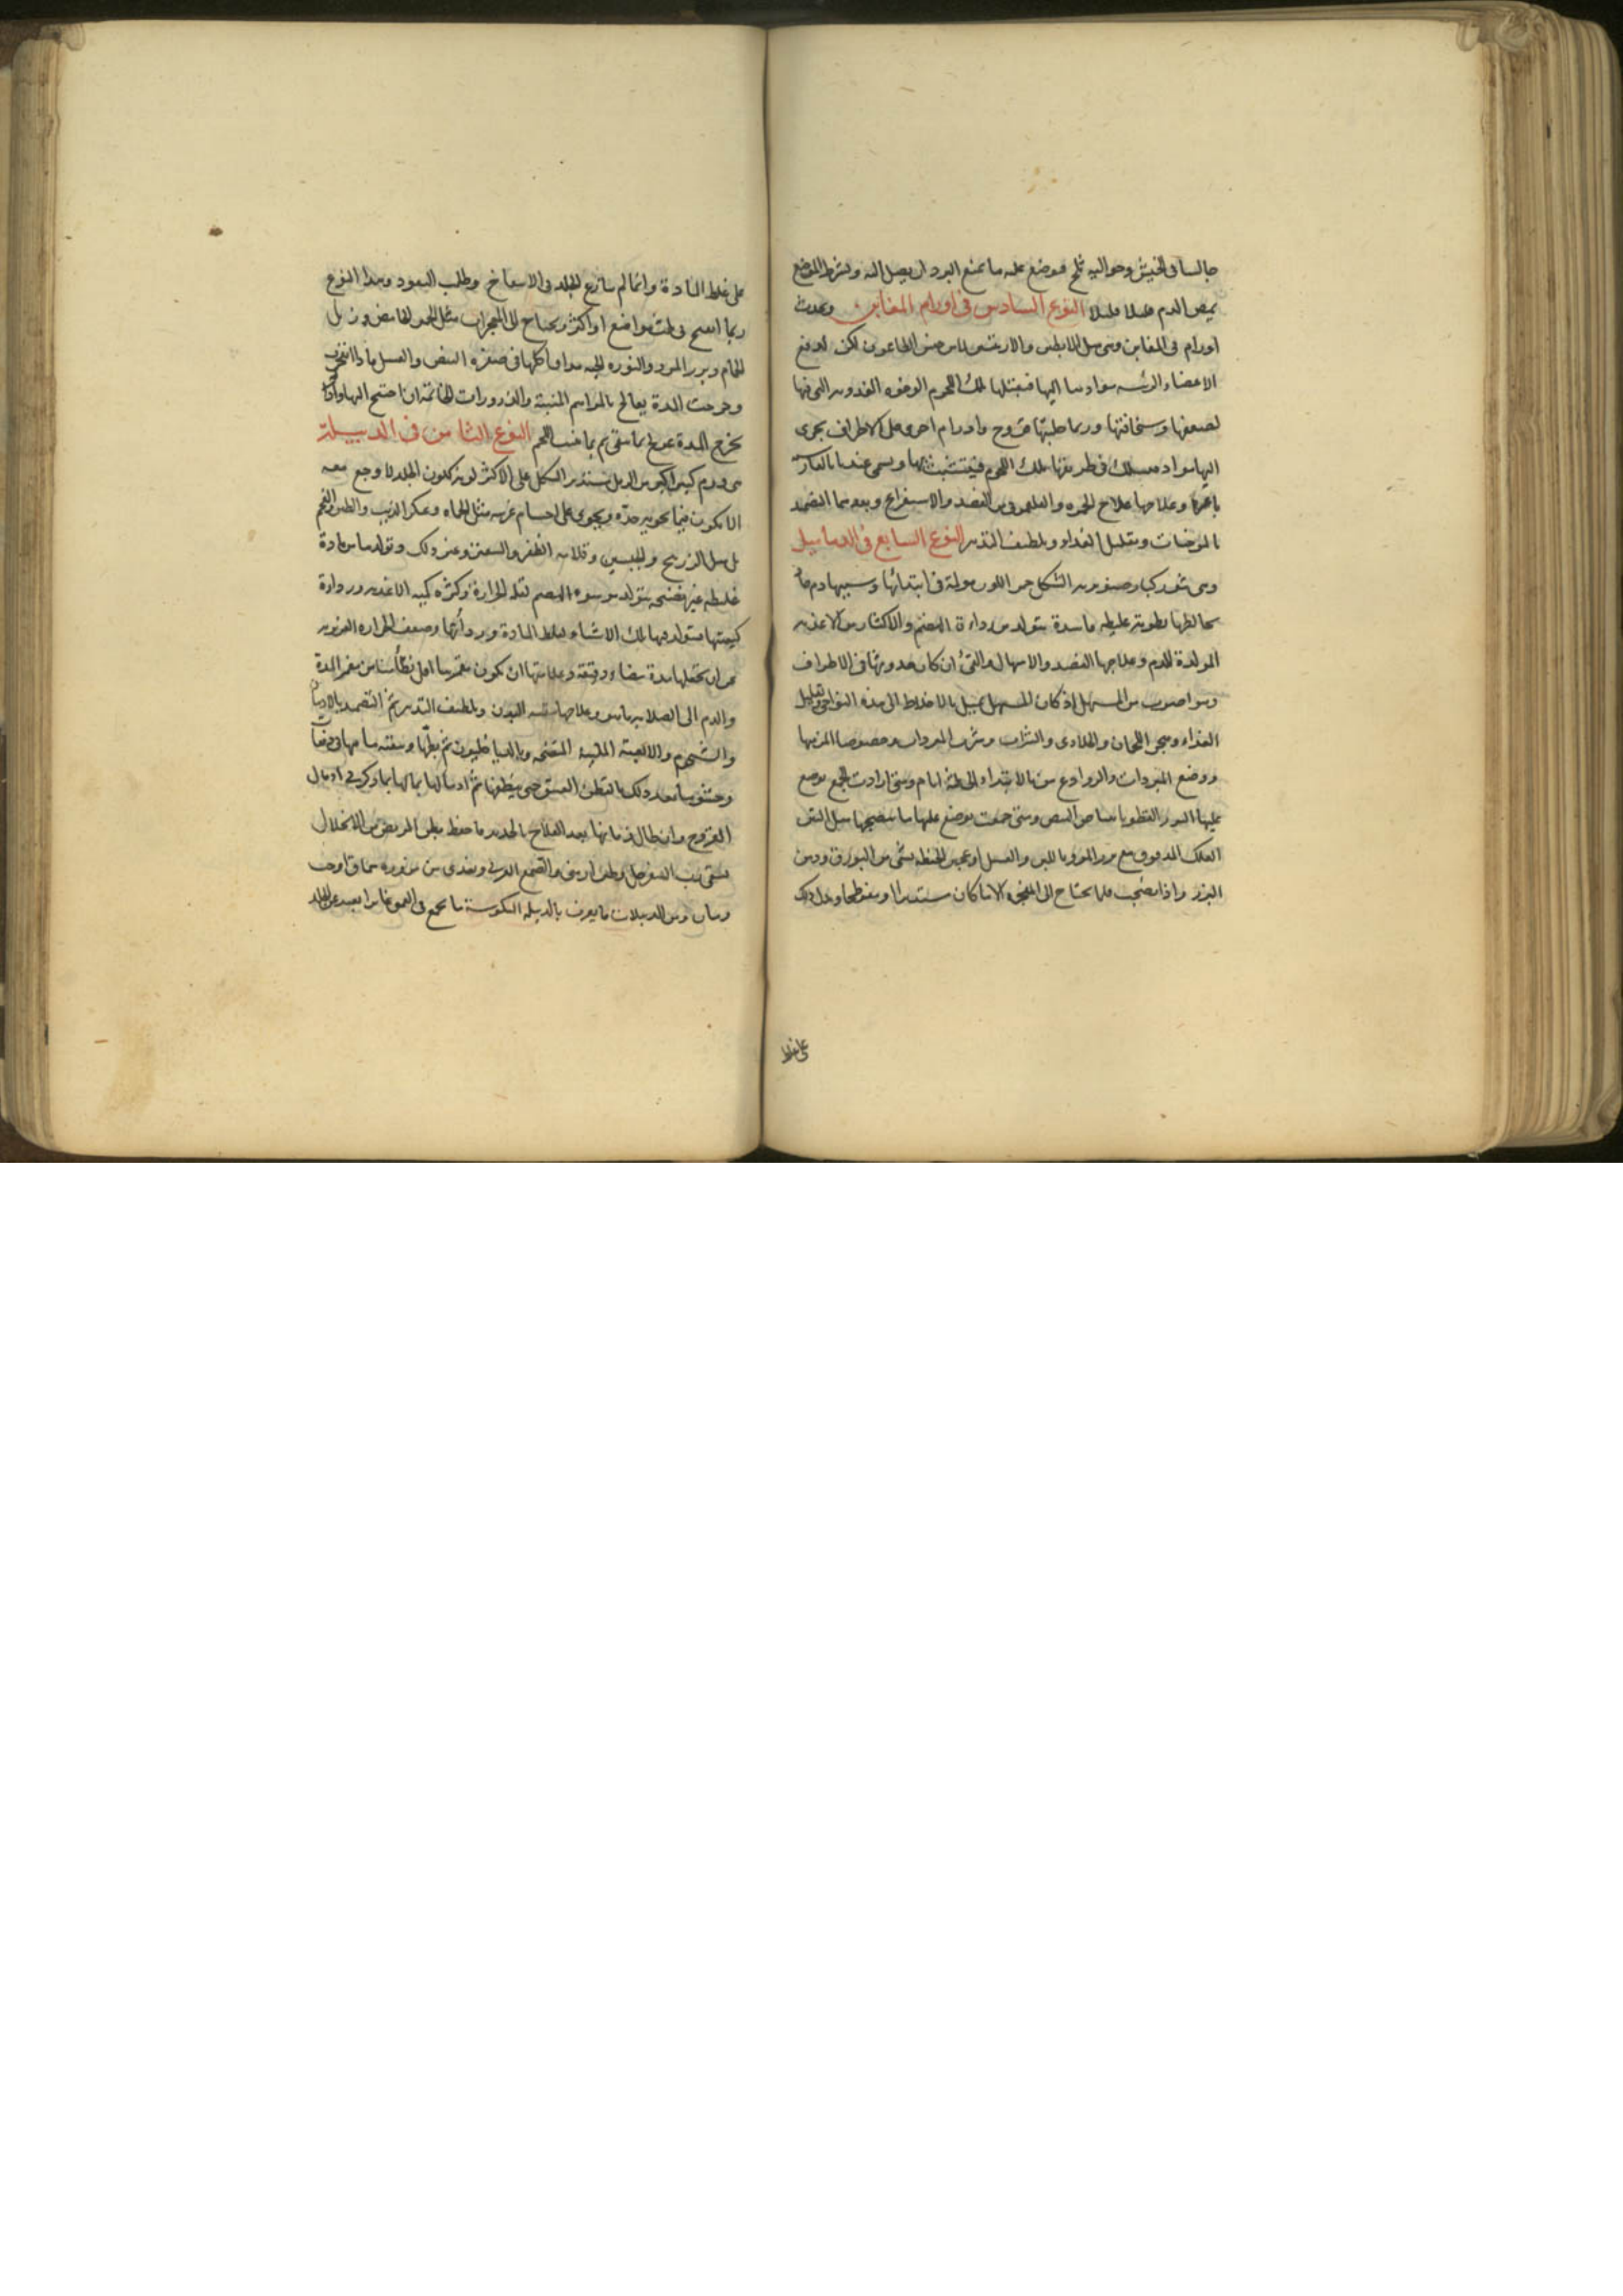 جالسا فى الخيش وحواليه ثلج فيوضع عليه ما يمنع البرد ان يصل اليه ويشرط الموضع
يمص الدم قليلا قليلا النوع السادس فى اورام المغابن ويحدث
اورام فى المغابن وهى مثل الابطين والاربيتين لا من جنس الطاعون لكن لدفع
الاعضاء الرئيسه موادها اليها فيقبلها تلك اللحوم الرخوه الغدديه التى فيها
لضعفها وسخافتها وربما جلبتها قروح واورام اخرى على الاطراف يجرى
اليها مواد فيسلك فى طريقها تلك اللحوم فيتشبث بها ويسمى عندنا
وعلاجها علاج الحمره والفلغمونى من الفصد والاستفراغ وبعدهما التضميد
بالمرخيات وبتقليل الغذاء وتلطيف التدبير النوع السابع فى الدماميل
وهى بثور كبار صنوبريه الشكل حمر اللون مولمة فى ابتدائها وسببها دم حار
يخالطها رطوبة غليظه فاسدة يتولد من رداءة الهضم والاكثار من الاغذيه
المولدة للدم وعلاجها الفصد والاسهال والقئ ان كان حدوثها فى الاطراف
وهو اصوب من المسهل اذ كان المسهل يميل بالاخلاط الى هذه النواحى وتقليل
الغذاء وهجر اللحمان والحلاوى والشراب وشرب المبردات وخصوصا المز منها
ووضع المبردات والروادع من الابتداء الى ثلثة ايام ومتى ارادت الجمع يوضع
عليها البزر القطونا ببياض البيض ومتى جمعت يوضع عليها ما ينضجها مثل التين
العلك المدقوق مع بزر المرو باللبن والعسل او عجين الحنطه بشئ من البورق ودهن
البزر واذا نضجت فلا يحتاج الى المفجره الا ما كان مستديرا او مفرطحا ويدل ذلك
على غلظ
على غلظ المادة وانما لم يتابع الجلد فى الانتفاخ وطلب النفوذ وهذا النوع
ربما انفتح فى ثلث مواضع او اكثر ويحتاج الى المفجرات مثل الخمير الحامض وزبل
الحمام وبزر المرو والنوره الحيه مدافا كلها فى صفره البيض والعسل فاذا انفجرت
وخرجت المدة يعالج بالمراهم المنبتة والذرورات الخاتمة ان احتيج اليها واذا
يخرج المدة عولج بما ينقى ثم بما ينبت اللحم النوع الثامن فى الدبيلة
هى ورم كبير اكبر من الدمل مستدير الشكل على الاكثر لونه كلون الجلد لا وجع معه
الا يكون فيما يحويه حدّه ويحوى على اجسام غريبه مثل الحماه وعكر الزيت والطين والفحم
بل مثل الزرنيخ والجبسين وقلامه الظفر والشعر وغير ذلك وتولدها من مادة
غليظه غير نضيجه يتولد من سوء الهضم لقله الحرارة وكثره كميه الاغذيه ورداءة
كيفيتها فيتولد فيها تلك الاشياء لغلظ المادة وبردأتها وضعف الحراره الغريزيه
عن ان تجعلها مدة بيضاء رقيقة وعلامتها ان يكون مغمزها اقل تطأمنا من مغمز المدة
والدم الى الصلابه ما هو وعلاجها تنقيه البدن وتلطيف التدبير ثم التضميد بالادهان
والشحوم والالعبة الملينة المنضجه وبالدياخليون ثم بطّها وتنقيه ما فيها فى دفعات
وحشوها بعد ذلك بالقطن العتيق حتى ينظفها ثم ادمالها بما ذكر فى ادمال
القروح وان طال زمانها بعد العلاج بالحديد فاحفظ بطن المريض من الانحلال
بسقى رب السفرجل وطين ارمنى والصمغ العربى ويغذى من مزوره سماق او حب
رمان ومن الدبيلات ما يعرف بالدبيله المنكوسة ما يجمع فى العمق غايرا بعيد عن الجلد